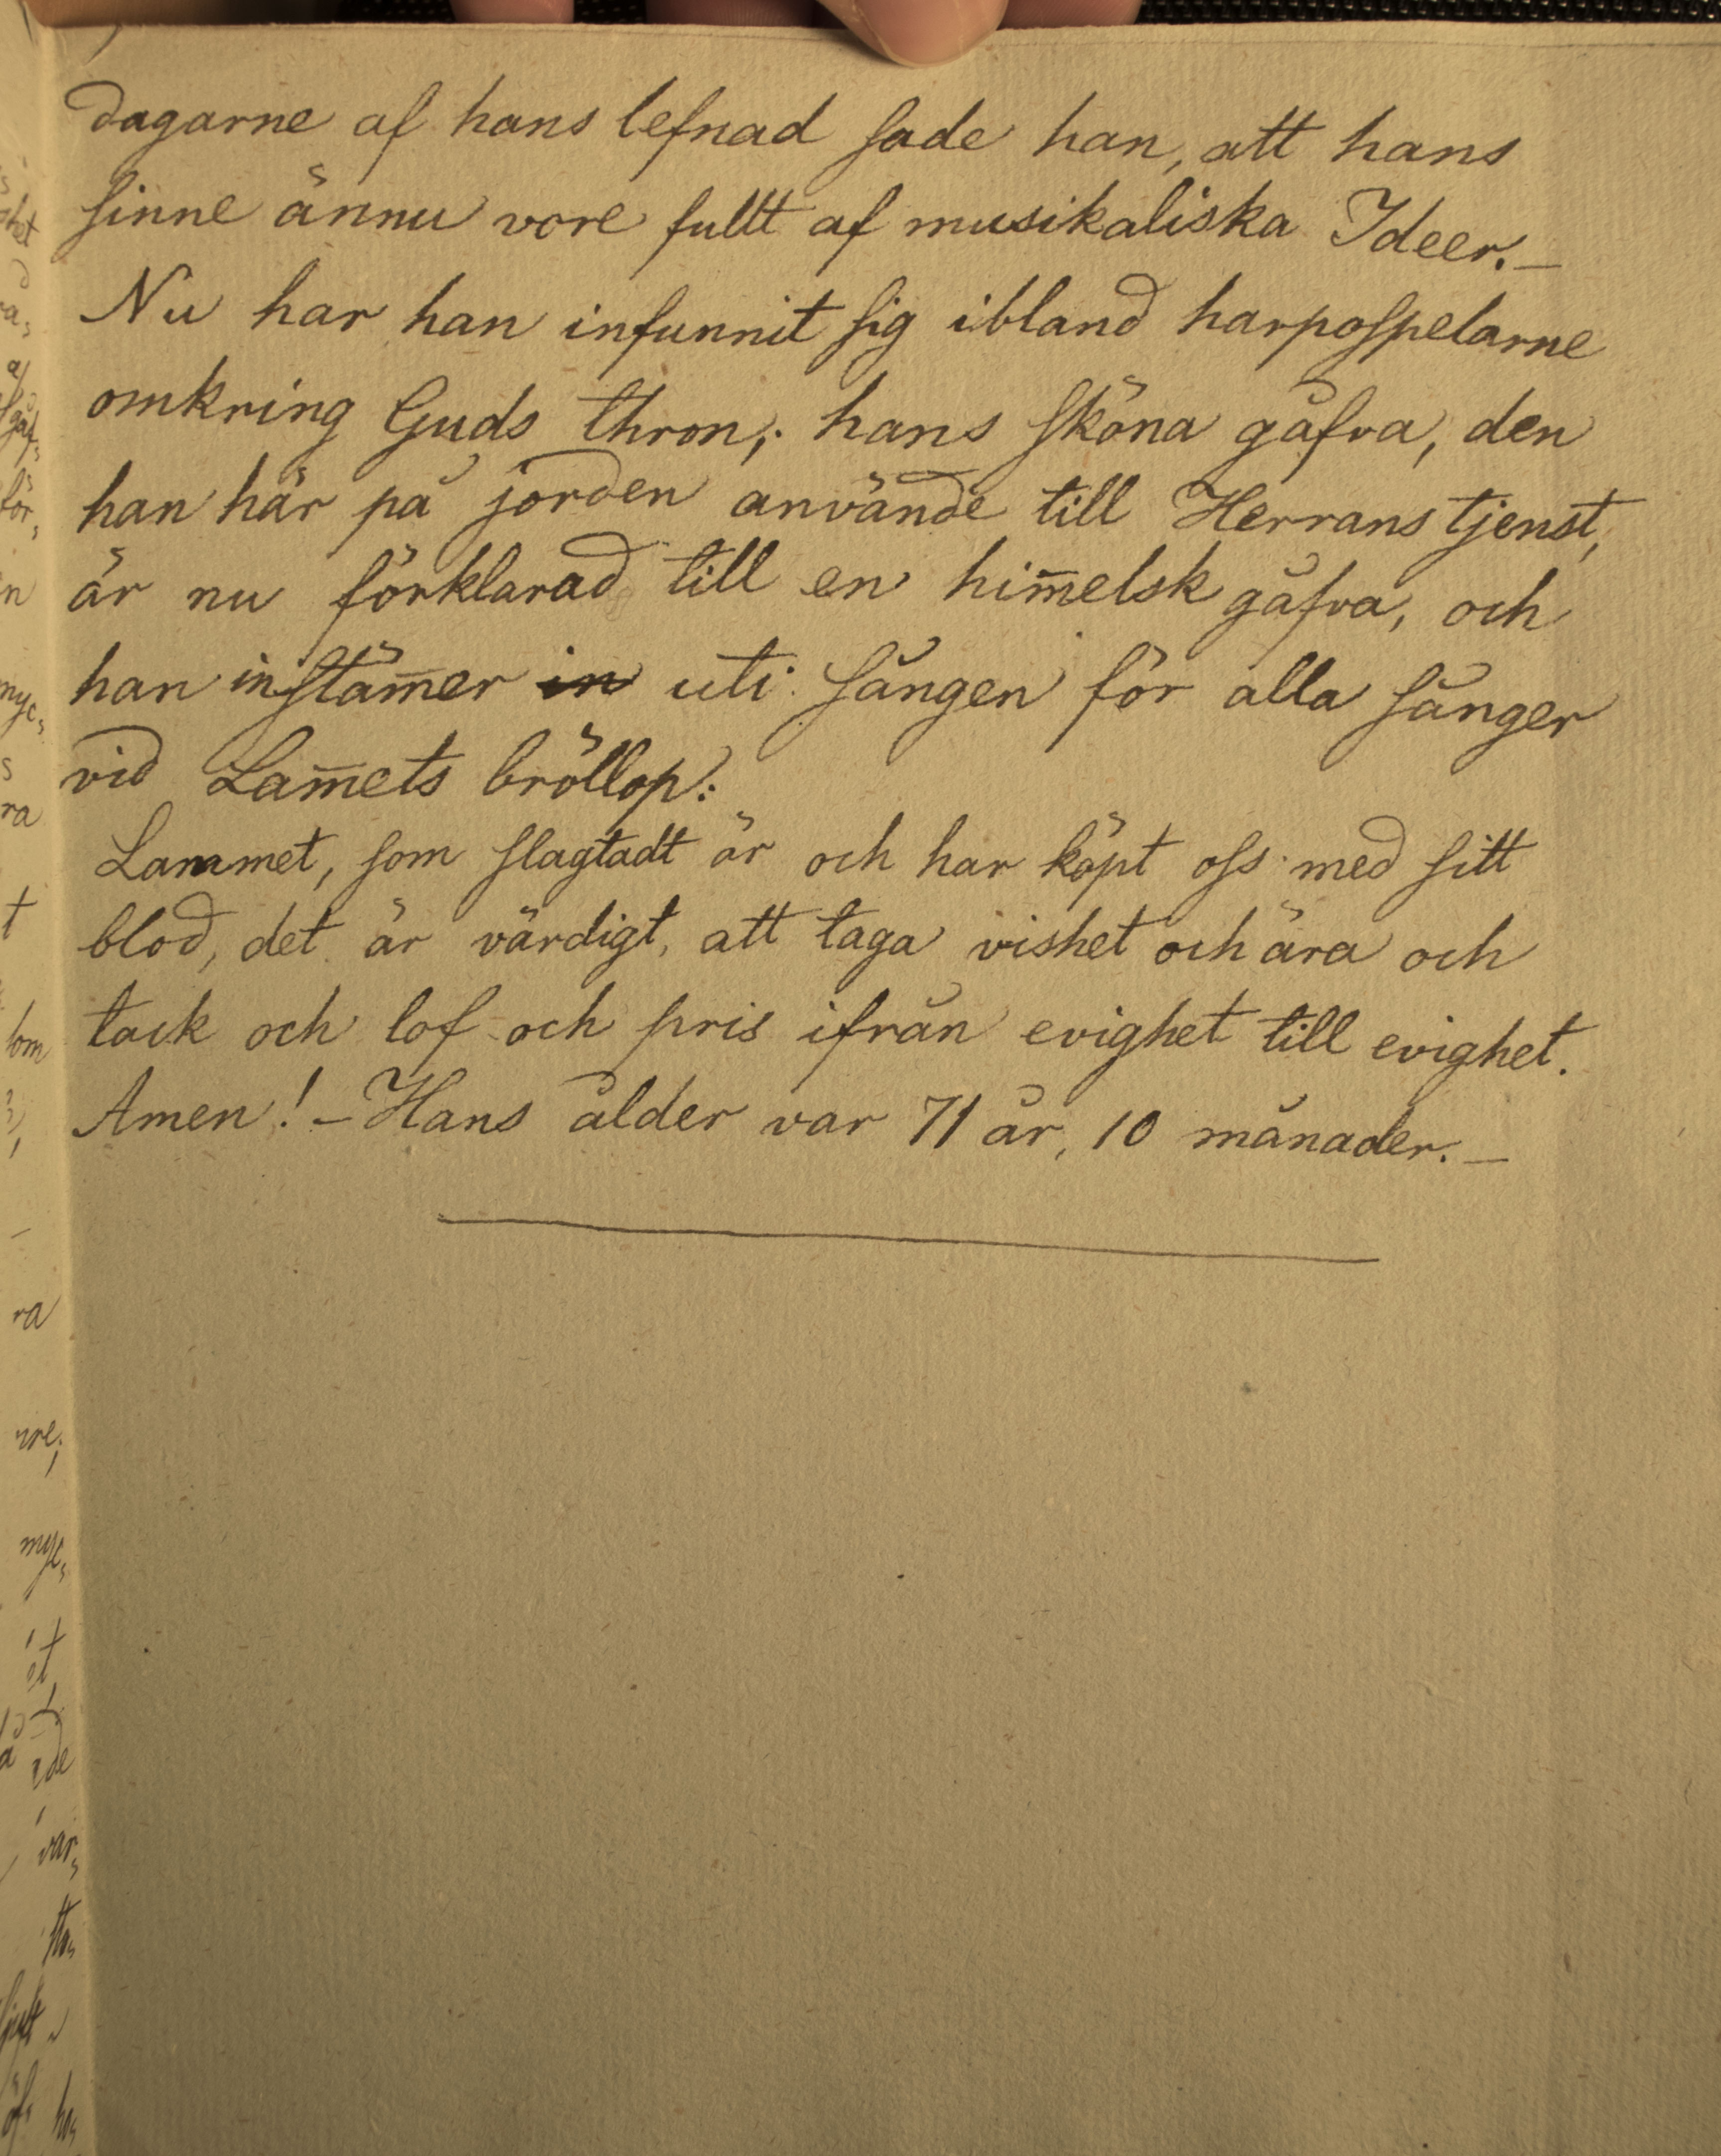 dagarne af hans lefnad sade han, att hans
sinne ännu vore fullt af musikaliska Ideer. _
Nu har han infunnit sig ibland harpospelarne
omkring Guds thron; hans sköna gåfva, den
han här på jorden använde till Herrans tjenst,
är nu förklarad till en him̅elsk gåfva, och
han instäm̅er in uti sången för alla sånger
vid Lam̅ets bröllop:
Lammet, som slagtadt är och har köpt oss med sitt
blod, det är värdigt, att taga vishet och ära och
tack och lof och pris ifrån evighet till evighet.
Amen! – Hans ålder var 71 år, 10 månader. _